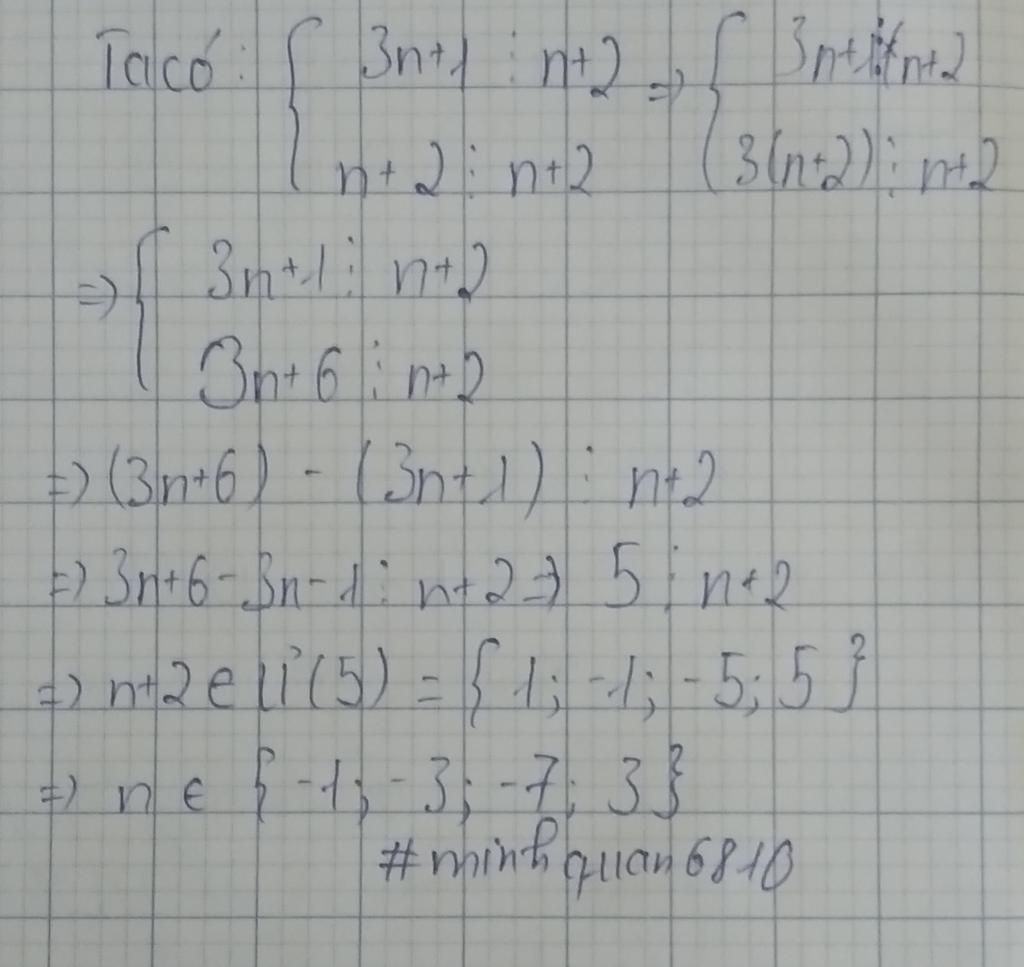 Ta có: { 3n+1 ⋮ n+2 => { 3n+1 ⋮ n+2
n+2 ⋮ n+2 3(n+2) ⋮ n+2
=> { 3n+1 ⋮ n+2
3n+6 ⋮ n+2
=> (3n+6) - (3n+1) ⋮ n+2
=> 3n+6-3n-1 ⋮ n+2 => 5 ⋮ n+2
=> n+2 ∈ Ư(5) = { 1; -1; -5; 5 }
=> n ∈ { -1; -3; -7; 3 }
#minhquan6810